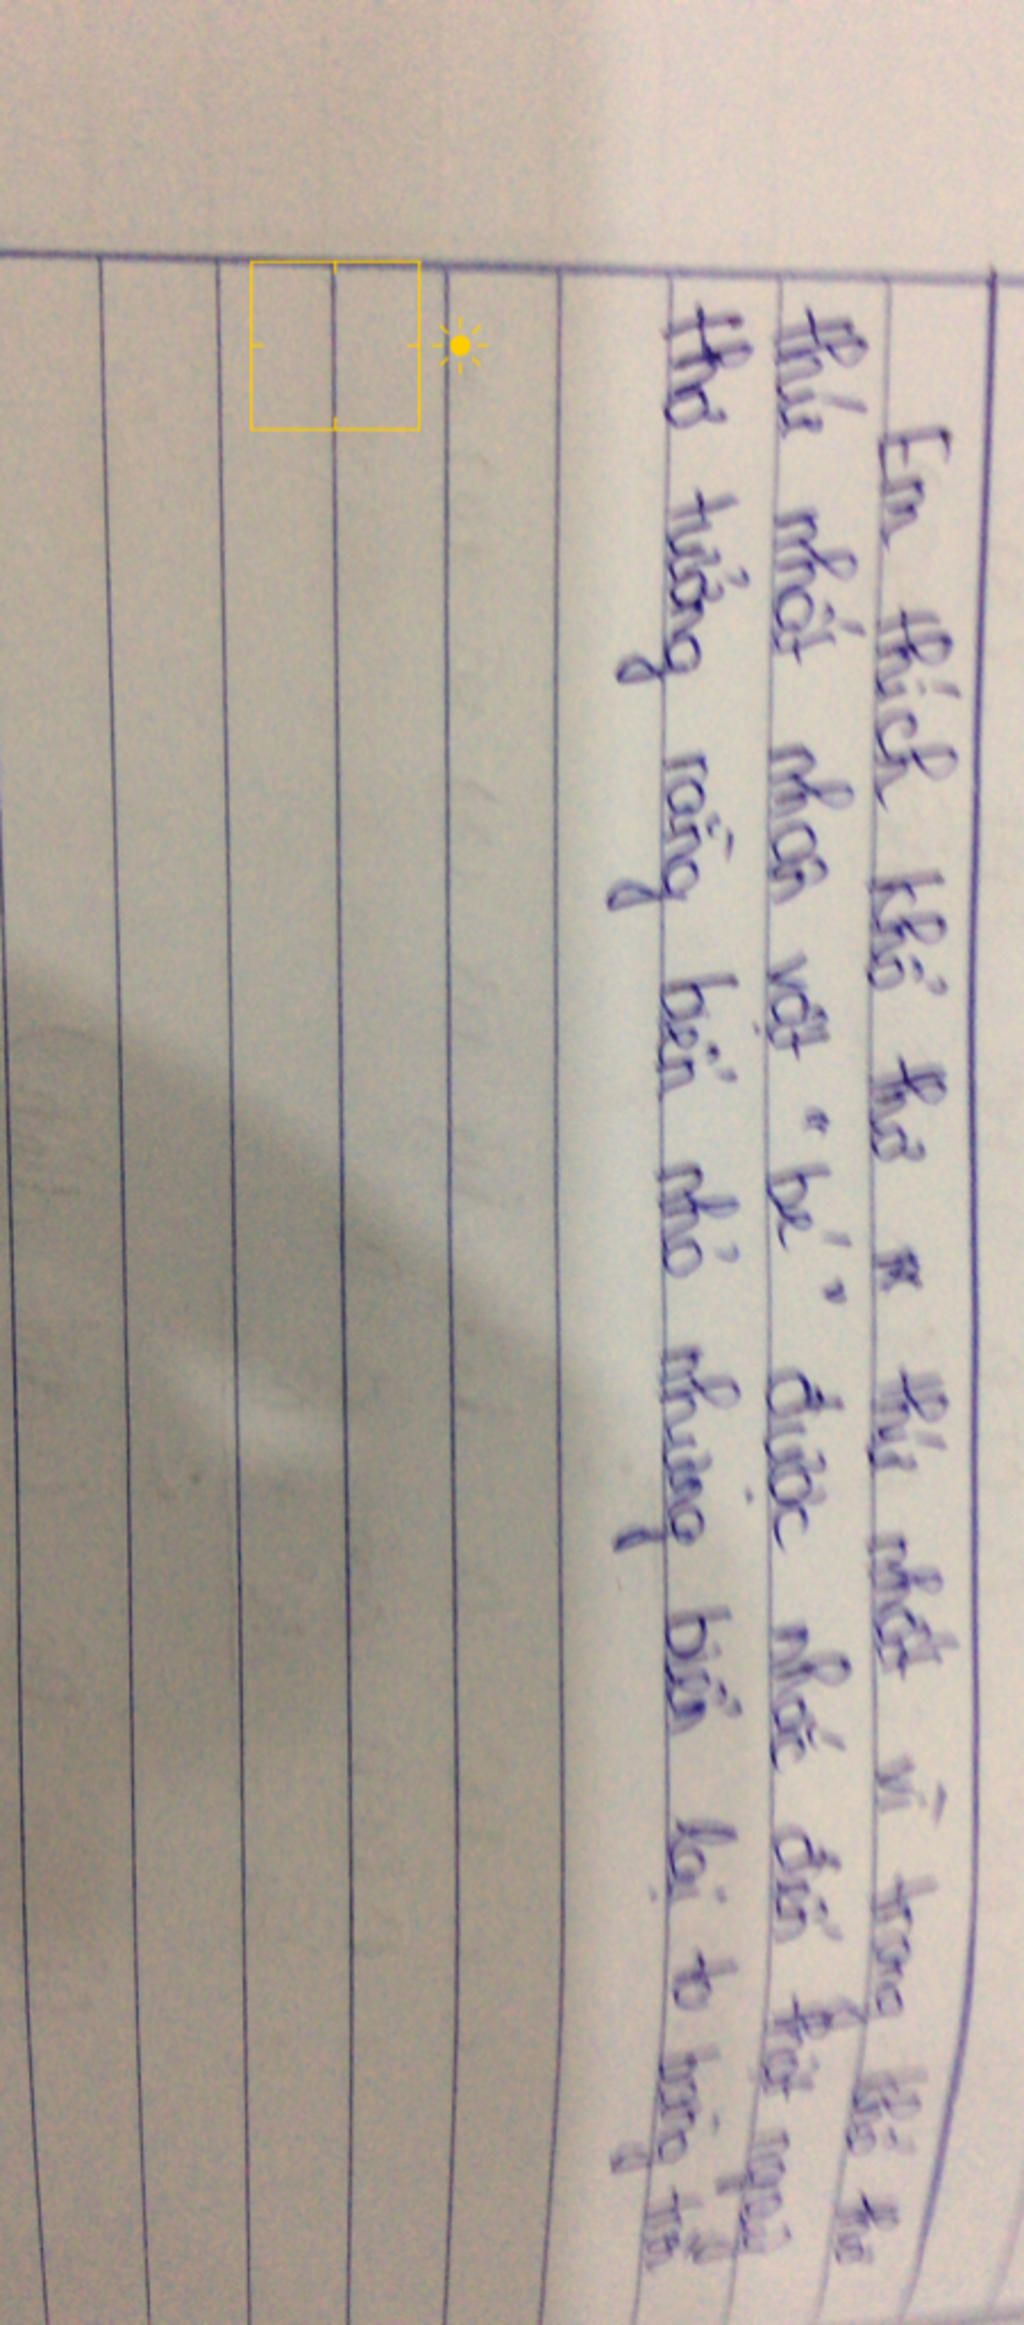 Em thích khổ thơ thứ nhất vì trong khổ thơ
thứ nhất nhân vật "bé" được nhắc đến
thơ tưởng rằng bển nhỏ nhưng biển lại to